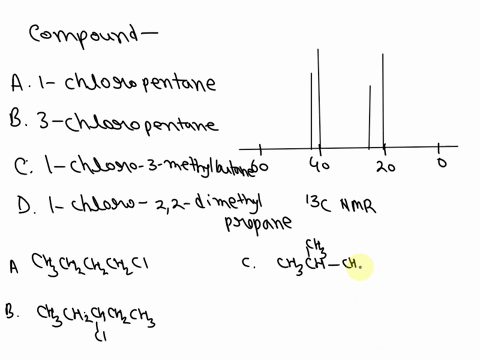 Compound—
A. 1-chloropentane
B. 3-chloropentane
C. 1-chloro-3-methylbutane
D. 1-chloro-2,2-dimethyl
propane
60 40 20 0
13C NMR
A CH3CH2CH2CH2Cl
C. CH3CH-CH
CH3
B. CH3CH2CHCH2CH3
Cl